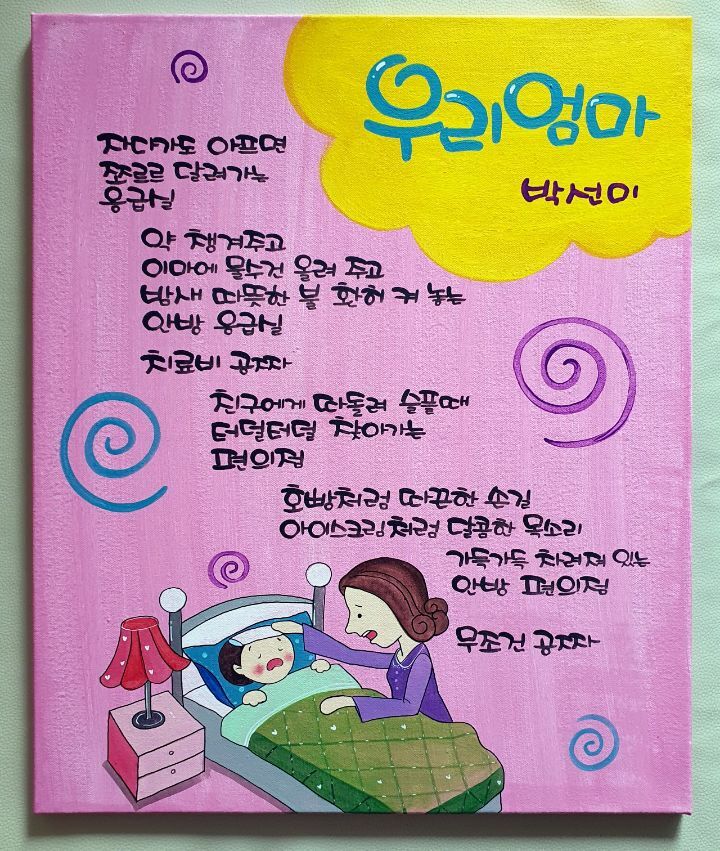 우리엄마
박선미
자다가도 아프면
쪼르르 달려가는
응급실
약 챙겨주고
이마에 물수건 올려 주고
밤새 따뜻한 불 환히 켜 놓는
안방 응급실
치료비 공짜다
친구에게 따돌려 슬플때
터덜터덜 찾아가는
편의점
호빵처럼 따끈한 손길
아이스크림처럼 달콤한 목소리
가득가득 차려져 있는
안방 편의점
무조건 공짜다